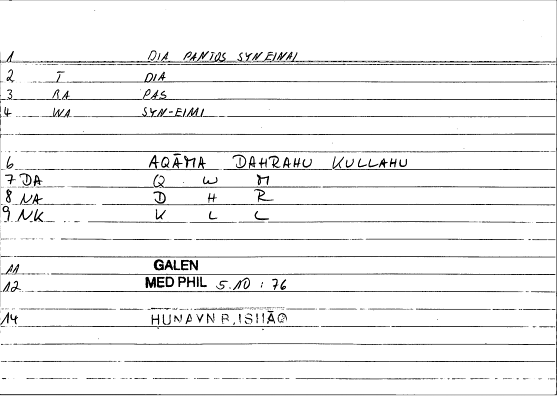 1 DIA PANTOS SYNEINAI
2 T DIA
3 RA PAS
4 WA SYN-EIMI
6 AQĀMA DAHRAHU KULLAHU
7 DA Q W M
8 NA D H R
9 NK K L L
11 GALEN
12 MED PHIL 5.10 : 76
14 ḤUNAYN B. ISḤĀQ